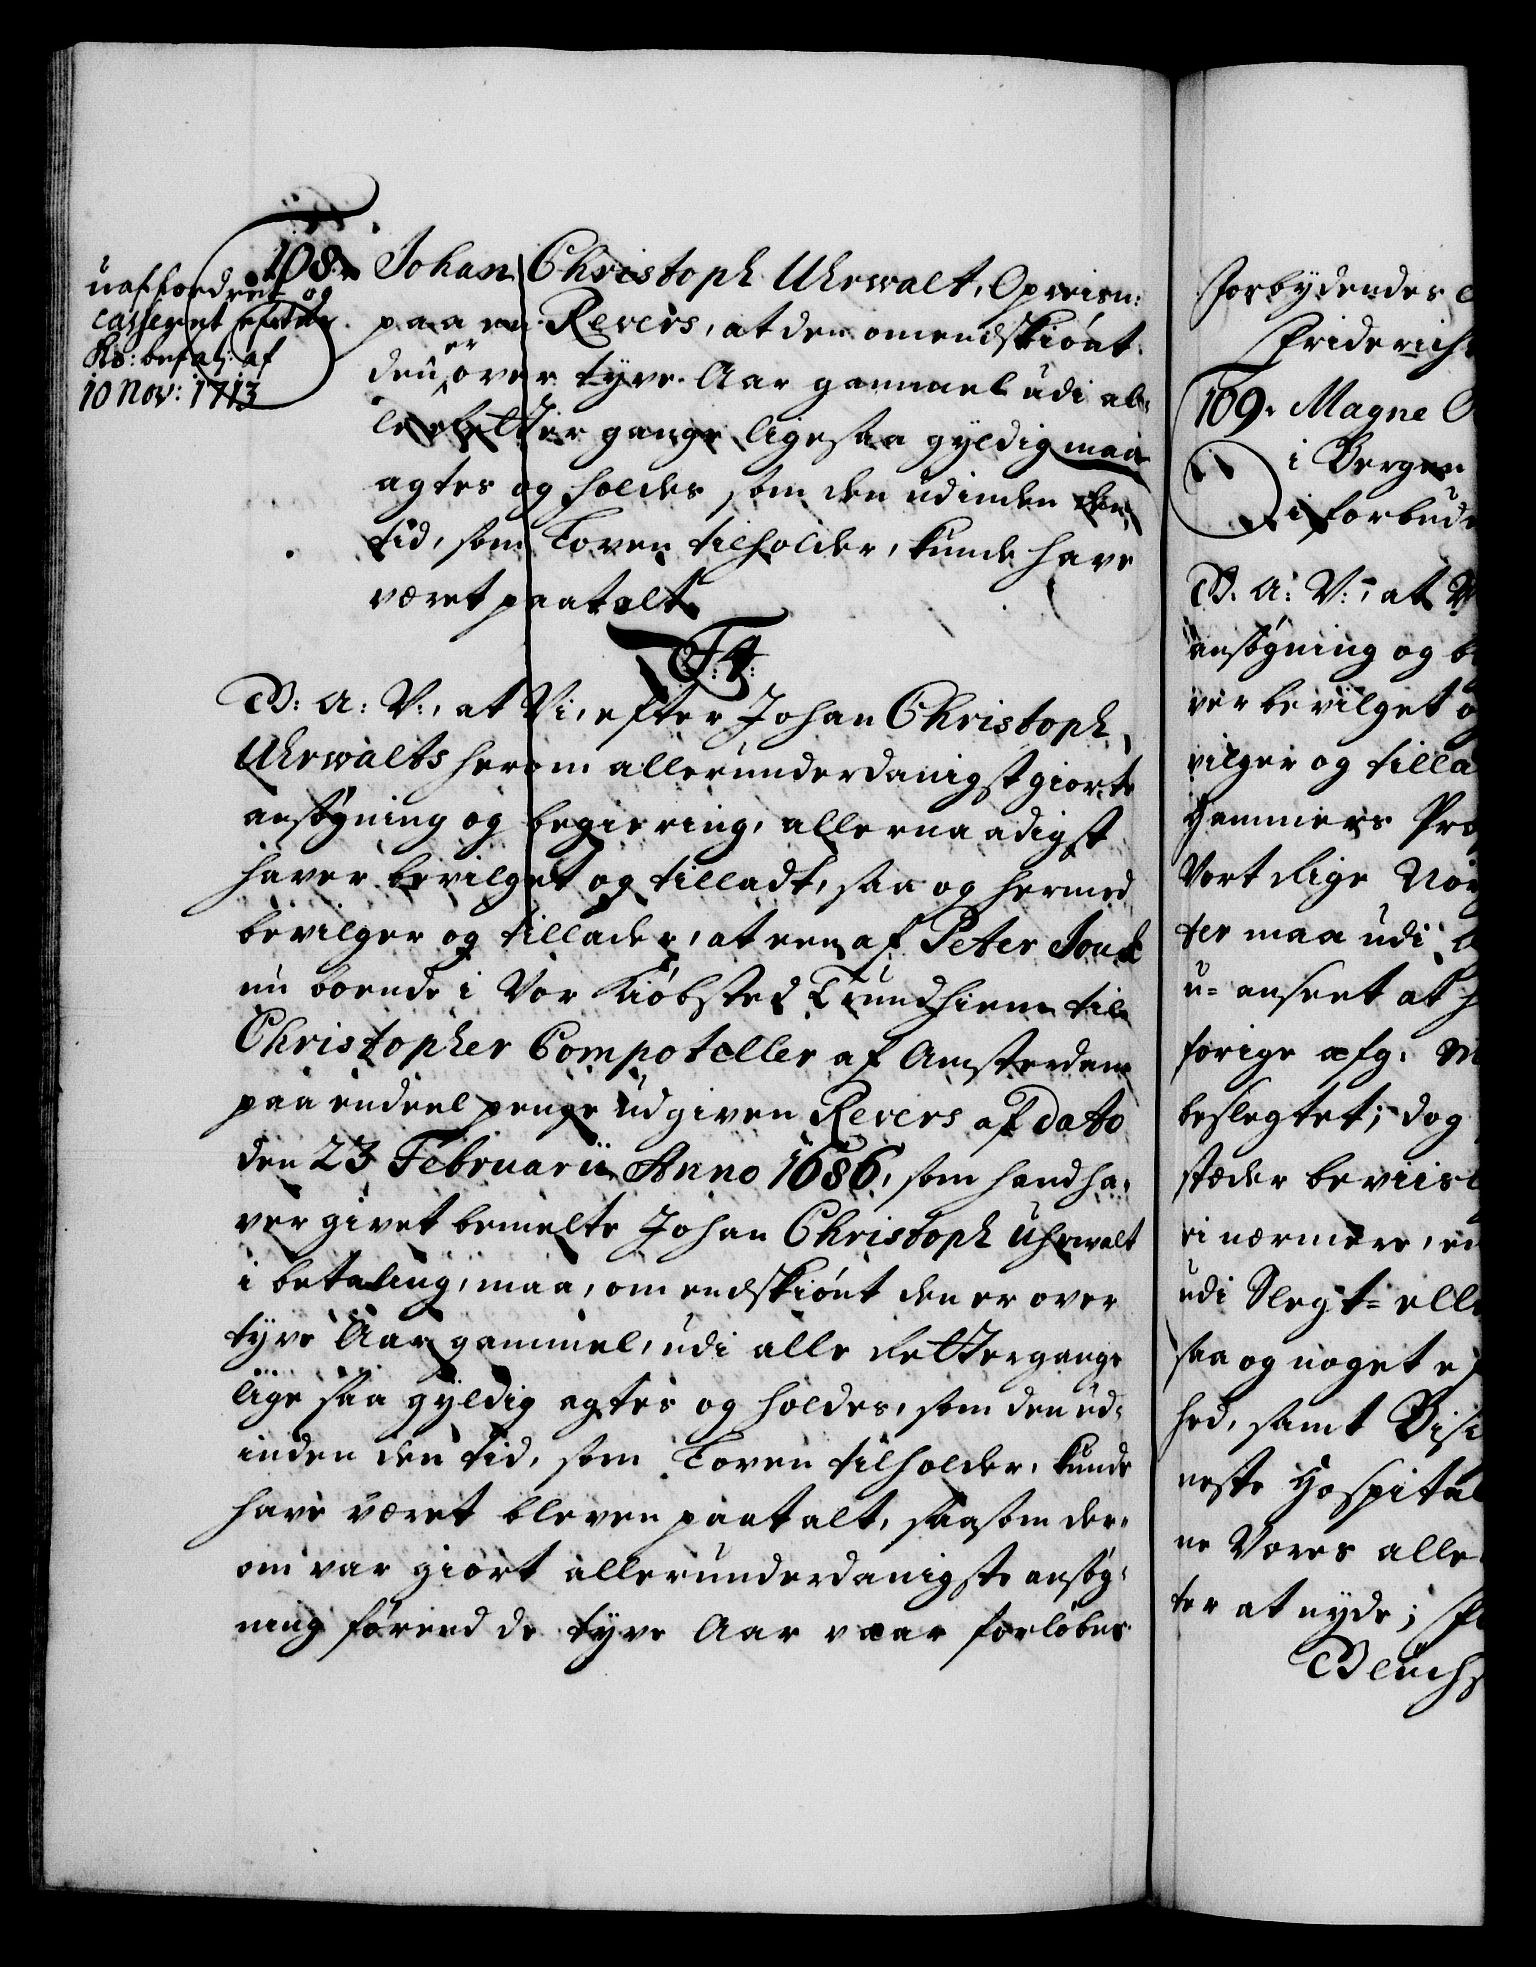 108.
uaffordret og
Casseret efter
Ks: befal: af
10 Nov: 1713
Johan Christoph Uhrwalt, Opreisn:
paa en Revers, at den omendskiønt
den er over tyve Aar gammel udi al-
le Retter gange ligesaa gyldig maa
agtes og holdes som den udinden den
tid, som Loven tilholder, kunde have
været paatalt.
F: 4:
G: A: V:, at Vi, efter Johan Christoph
Uhrwalts herom allerunderdanigst giorte
ansøgning og begiering, allernaadigst
haver bevilget og tilladt, saa og hermed
bevilger og tillader, at een af Peter
nu boende i Vor Kiøbsted Trundhiem til
Christopher Compoteller af Amsterdam
paa endeel penge udgiven Revers af dato
den 23 Februarii Anno 1686, som hand ha-
ver givet bemelte Johan Christoph Uhrwalt
i betaling, maa, omendskiønt den er over
tyve Aar gammel, udi alle Rettergange
lige saa gyldig agtes og holdes, som den ud-
inden den tid, som Loven tilholder, kunde
have været bleven paatalt, saasom der-
om var giort allerunderdanigste ansøg-
ning førend de tyve Aar vaar forløben
Forbydendes
Friderichs
109. Magne
i Bergen
i forbud
G. A: V:, at V
ansøgning og be
ver bevilget og
vilger og tillad
Hammers Præ
Vort Rige Nor
ter maa udi
u-anseet at h
forige afg: M
beslegtet; dog
stæder beviisl
ei nærmere, en
udi Slegt- elle
saa og noget
hed, samt Bis
neste Hospital
ne Vores alle
ter at nyde; F